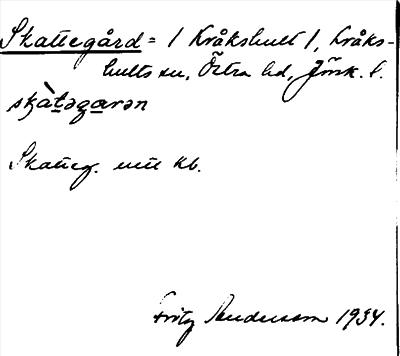 Skattegård = 1 Kråkshult 1, Kråks-
hults sn, Östra hd, Jönk. l.
skàtəgarən
Skatteg. utt kb.
Fritz Andersson 1934.